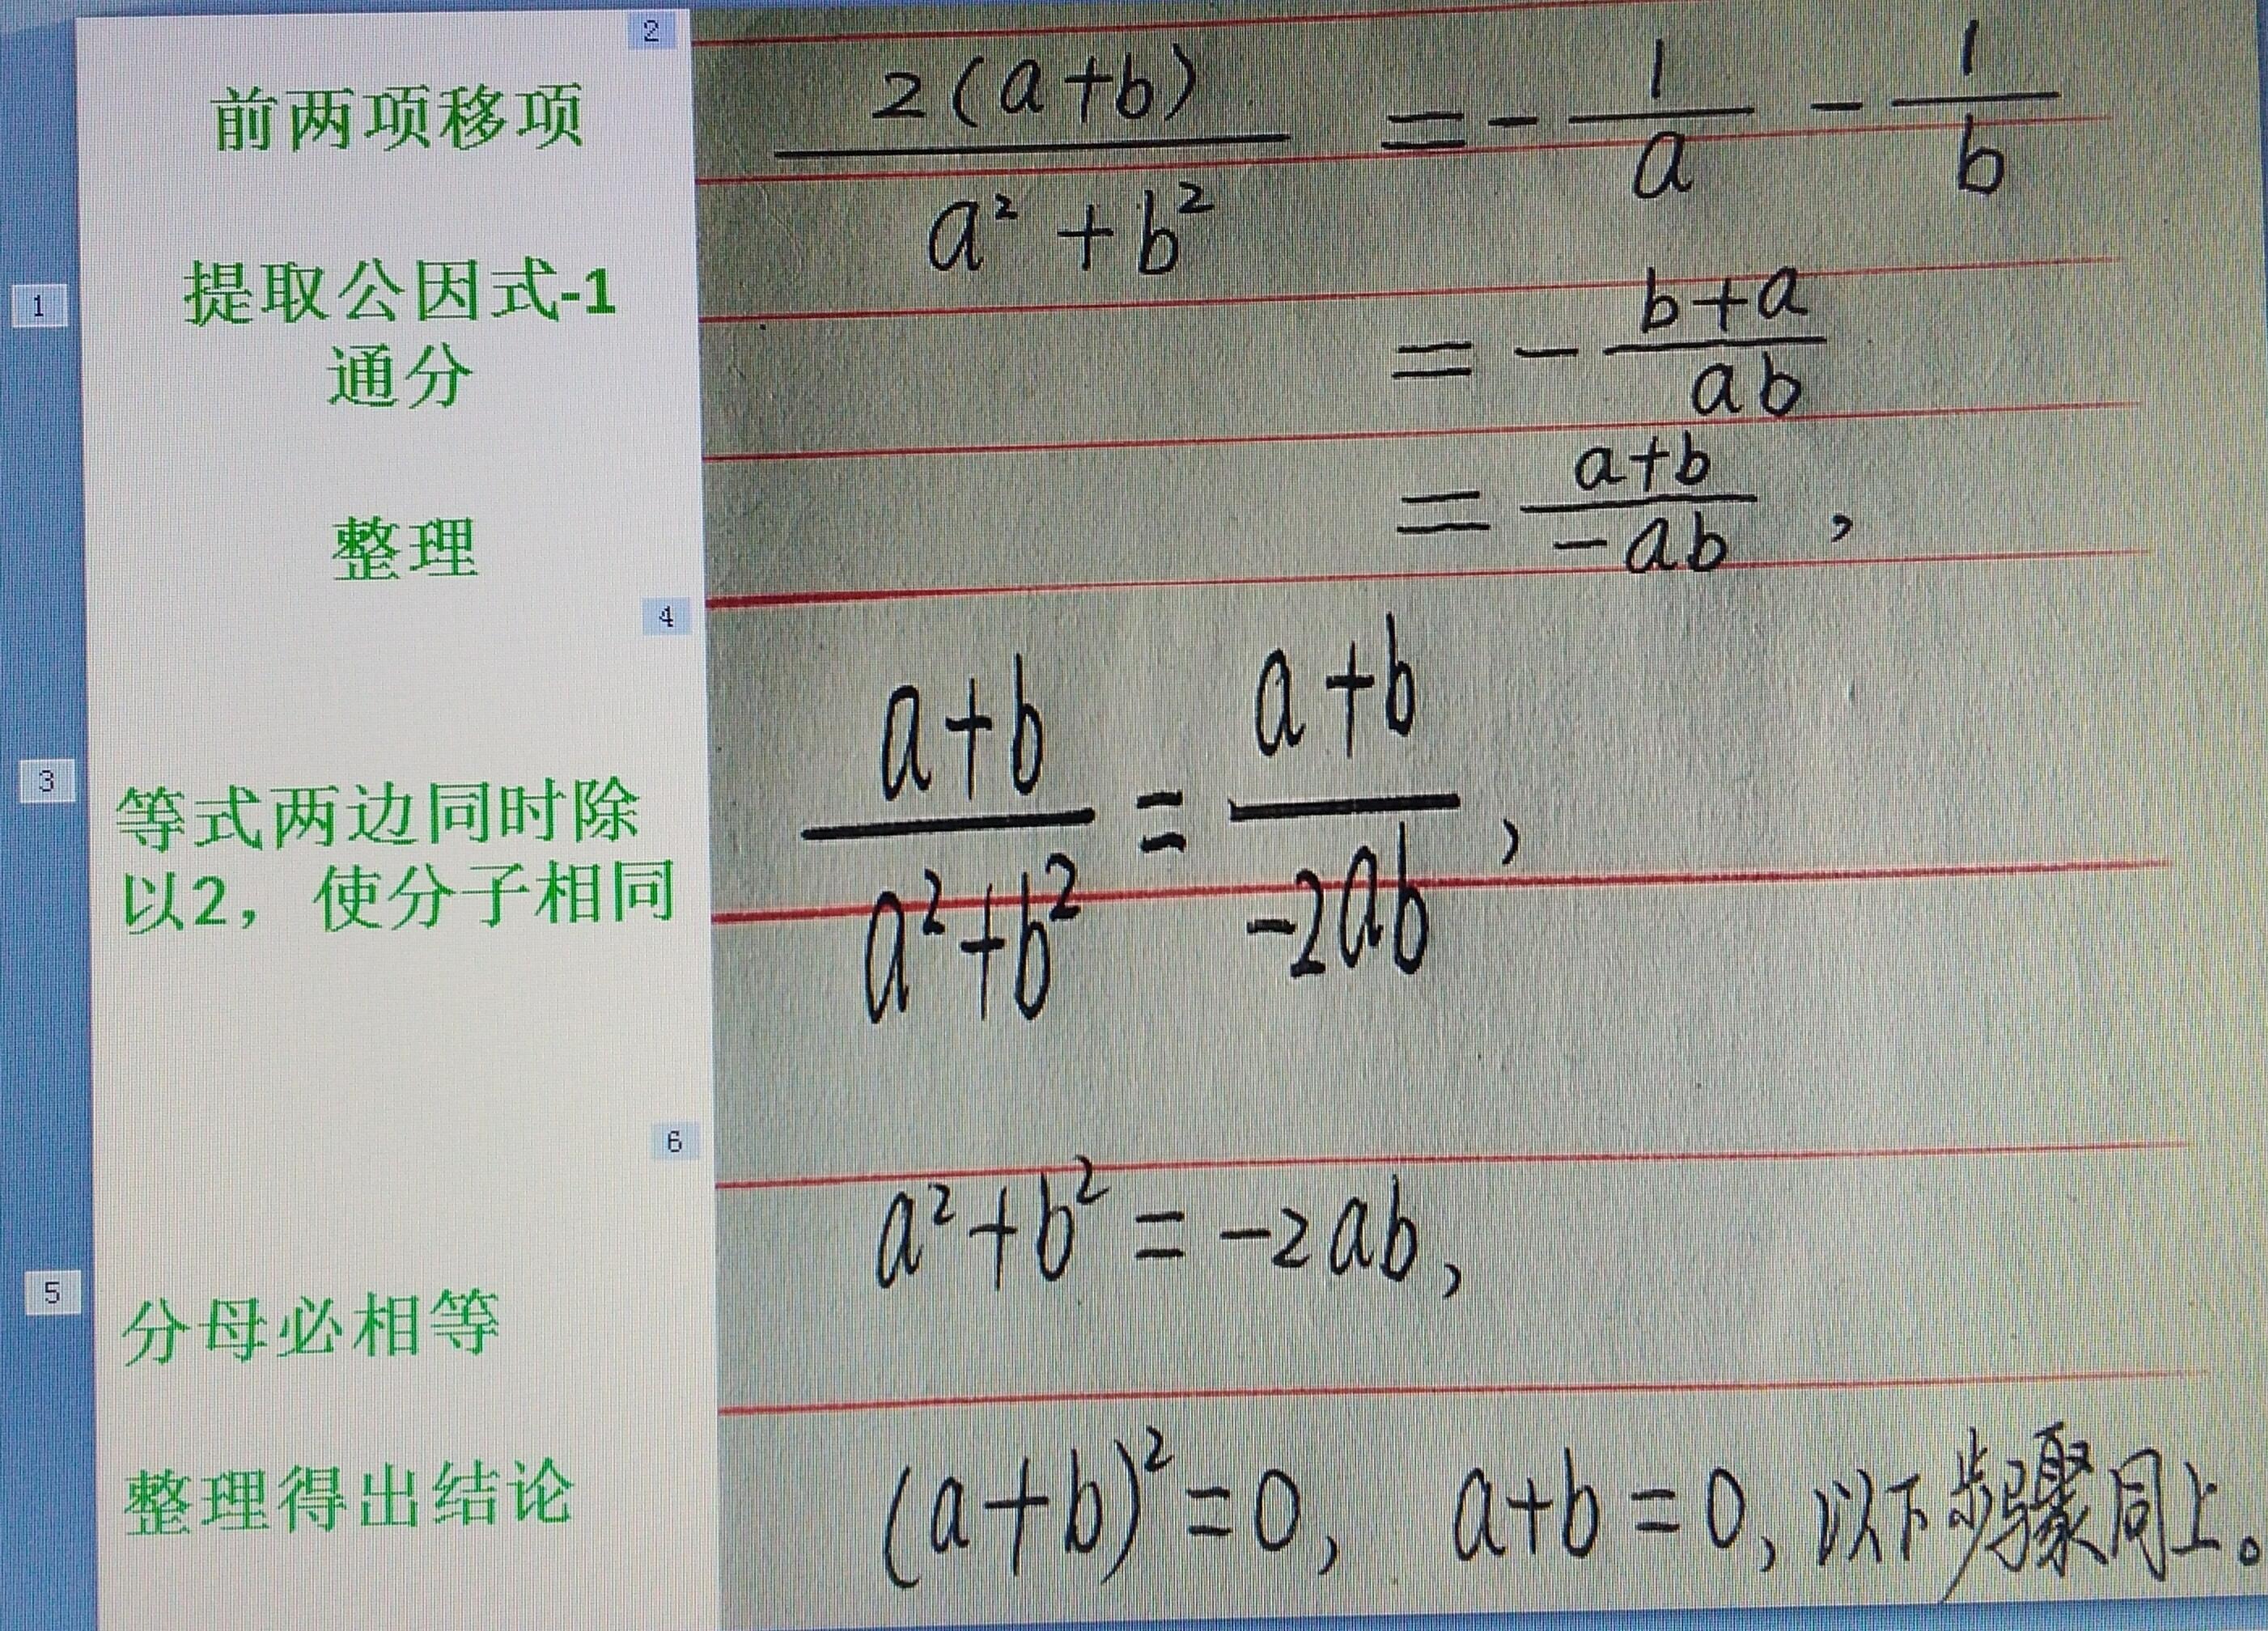 2
前两项移项
2(a+b)/(a²+b²) = -1/a - 1/b
1
提取公因式-1
通分
= -(b+a)/(ab)
整理
= (a+b)/(-ab) ,
4
3
等式两边同时除
以2，使分子相同
(a+b)/(a²+b²) = (a+b)/(-2ab) ,
6
a²+b² = -2ab,
5
分母必相等
整理得出结论
(a+b)²=0, a+b=0, 以下步骤同上。